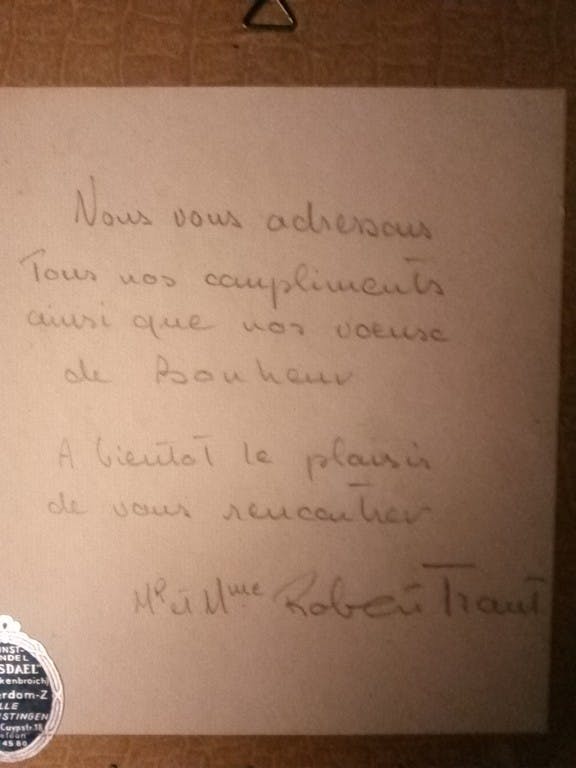 Nous vous adressons
Tous nos compliments
ainsi que nos voeux
de Bonheur
A bientot le plaisir
de vous rencontrer
Mr et Mme Robert Traut
NST-
NDEL
SDAEL"
kenbroich)
erdam-Z
LLE
STINGEN
Cuypstr. 18
efoon
4580